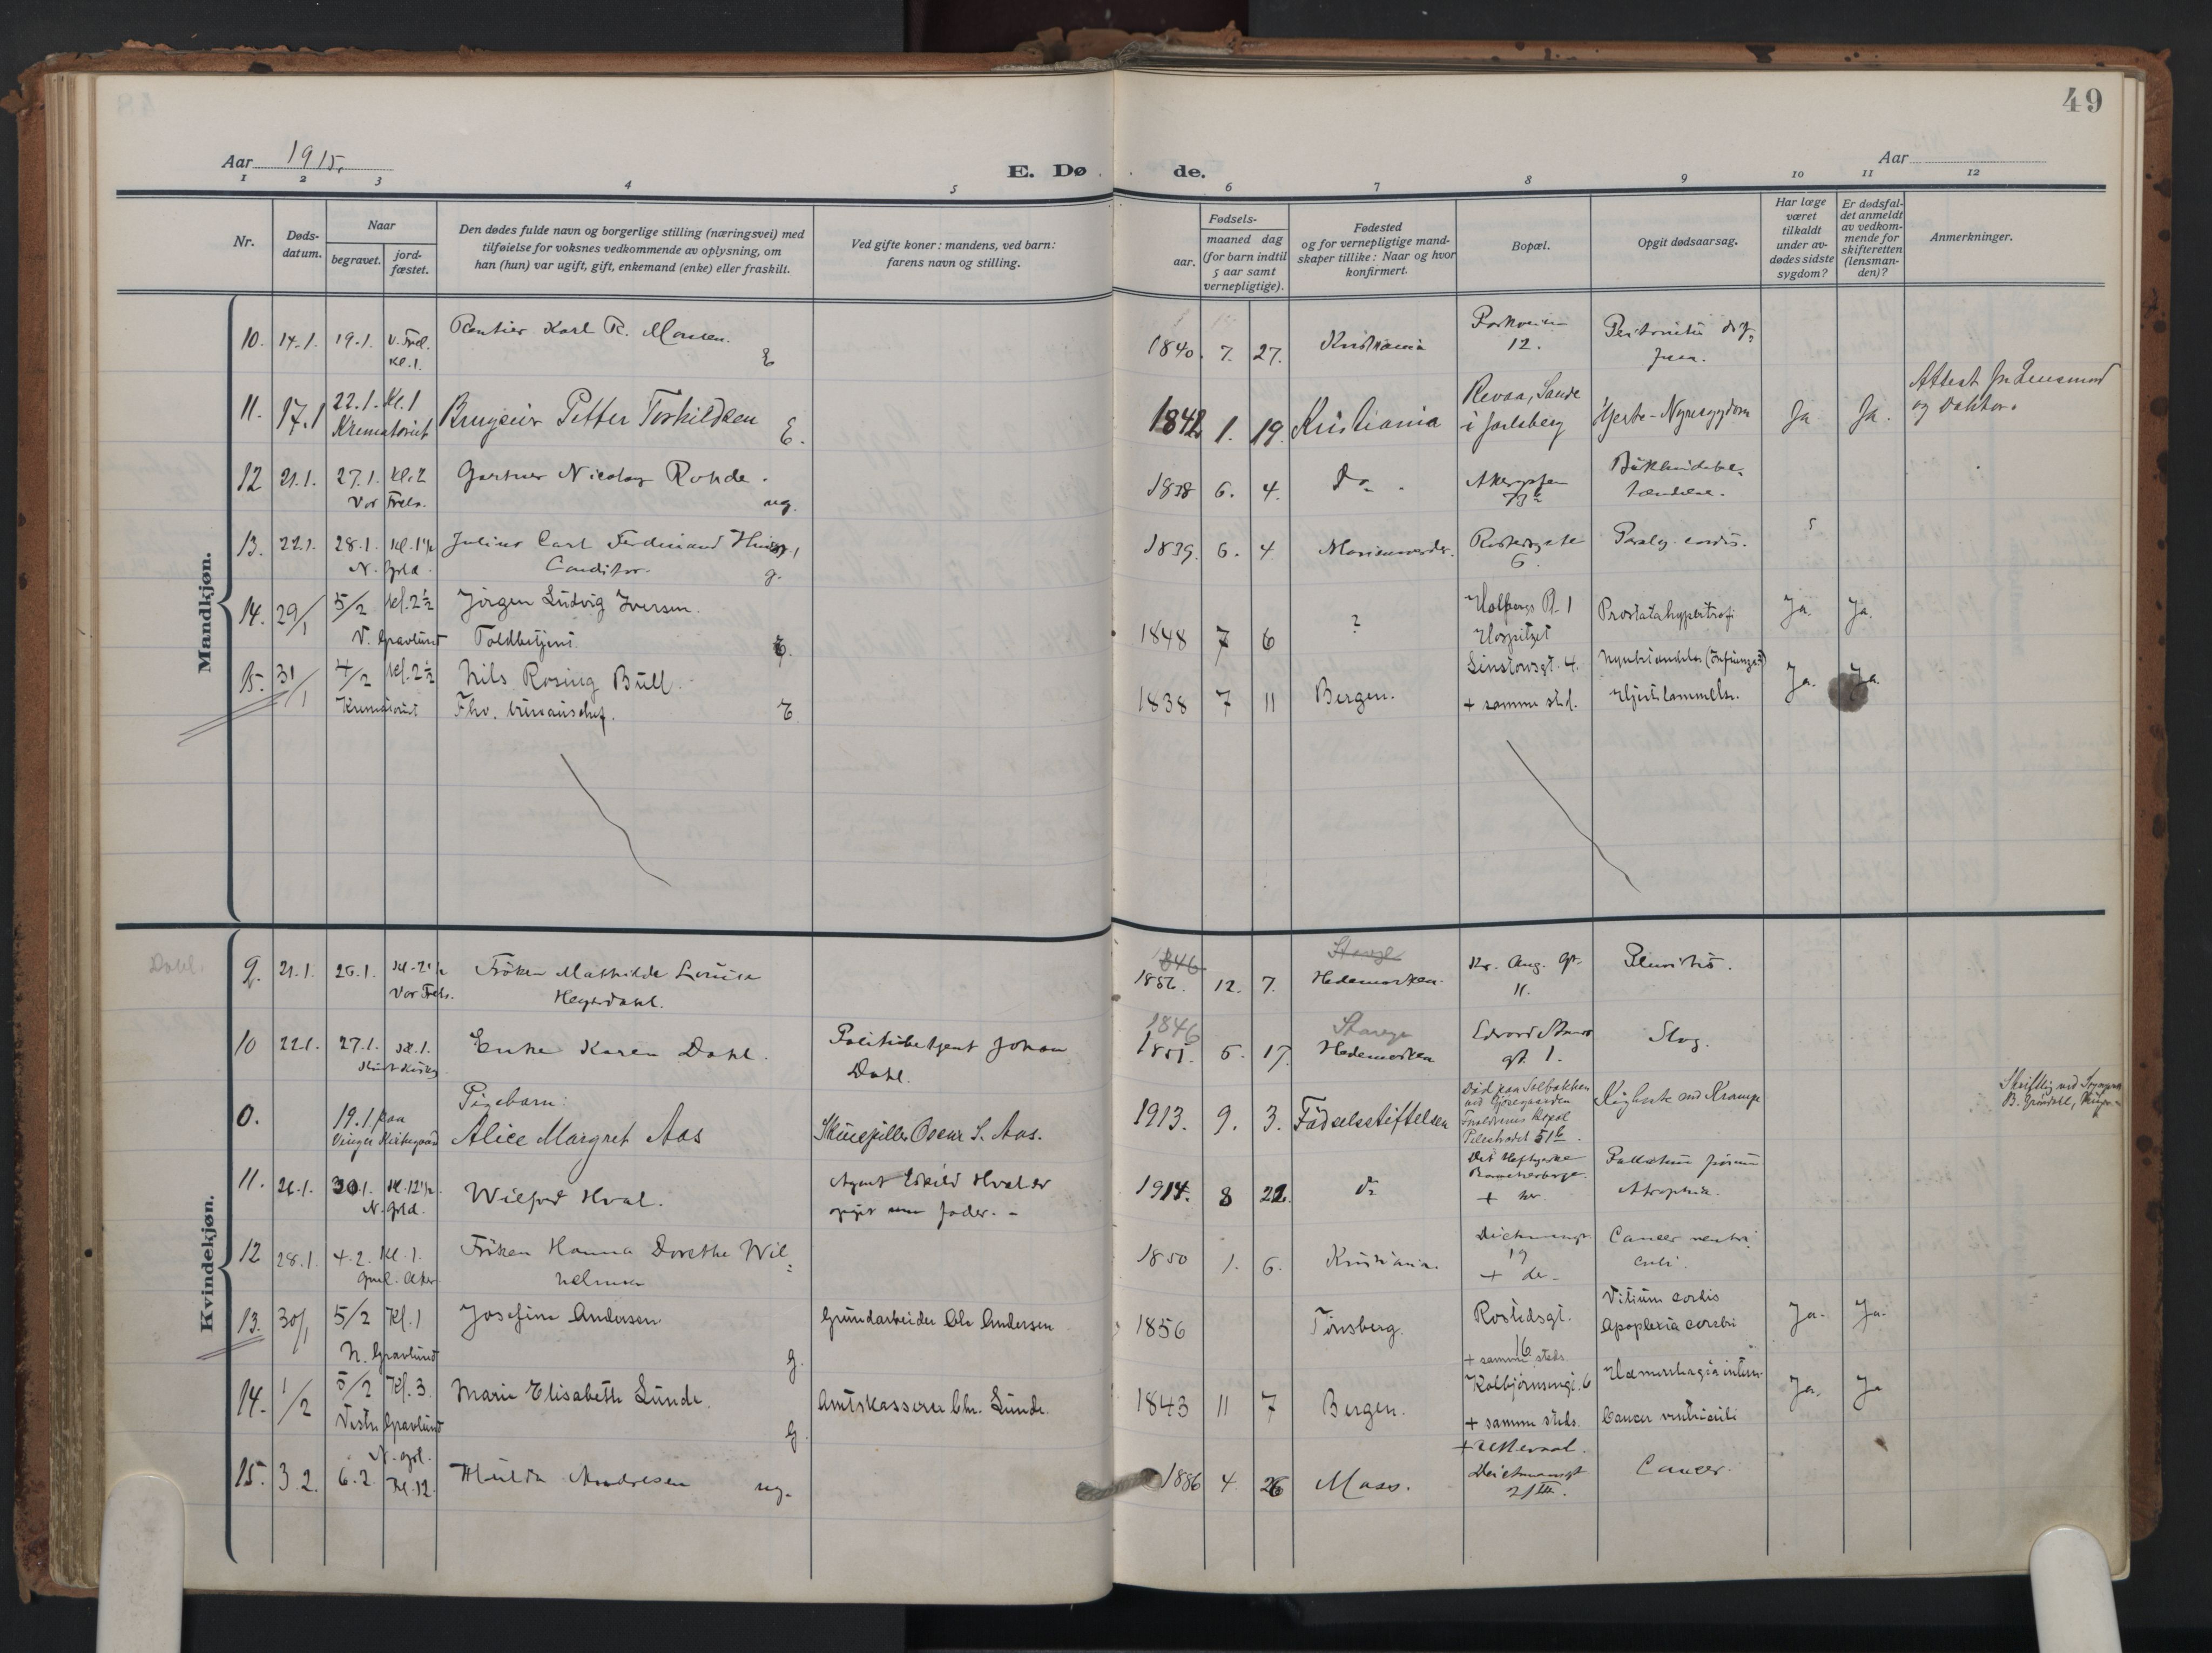 49
Aar 1915.
E. Dø de.
Aar
1 2 3 4 5 6 7 8 9 10 11 12
Nr.
Døds-
datum.
Naar
begravet.
jord-
fæstet.
Den dødes fulde navn og borgerlige stilling (næringsvei) med
tilføielse for voksnes vedkommende av oplysning, om
han (hun) var ugift, gift, enkemand (enke) eller fraskilt.
Ved gifte koner: mandens, ved barn:
farens navn og stilling.
Fødsels-
aar.
maaned dag
(for barn indtil
5 aar samt
vernepligtige).
Fødested
og for vernepligtige mand-
skaper tillike: Naar og hvor
konfirmert.
Bopæl.
Opgit dødsaarsag.
Har læge
været
tilkaldt
under av-
dødes sidste
sygdom?
Er dødsfal-
det anmeldt
av vedkom-
mende for
skifteretten
(lensman-
den)?
Anmerkninger.
Mandkjøn.
10. 14.1. 19.1. V. Frel. kl. 1.
Rentier Karl R. Monsen. E
1840. 7. 27. Kristiania
Parkveien
12.
11. 17.1 22.1. Kl. 1
Krematoriet
Petter Torkildsen E.
1842 1. 19. Kristiania
Revaa, Sande
i Jarlsberg
Hjerte-Nyresygdom
Ja Ja.
Attest fra Lensmand
og Doktor.
12 21.1. 27.1. Kl. 2
Vor Frels.
Gartner Nicolay Rohde. ug.
1838 6. 4. Do
13. 22.1. 28.1. Kl. 1½
N. Grld.
Julius Carl Ferdinand
Conditor. g.
1839. 6. 4 Marienwerder.
6.
Paraly. cordis.
14. 29/1 5/2 Kl. 2½
V. Gravlund
Jörgen Ludvig Iversen.
Toldbetjent. E.
1848 7 6 ?
Holbergs Pl. 1
Hospitset
Prostatahypertrofi
Ja. Ja.
15. 31/1 4/2 Kl. 2½
Krematoriet
Nils Rosing Bull.
Fhv. bureauschef. E
1838 7 11 Bergen.
Linstowsgt. 4.
+ samme sted.
Hjertelammelse.
Ja. Ja.
Kvindekjøn.
Dahl.
9. 21.1. 26.1. Kl. 2½
Vor Frels.
Fröken Mathilde Louise
Heyerdahl.
1846
1856. 12. 7.
Stange
Hedemarken.
Kr. Aug. gt.
11.
Pleuritis.
10 22.1. 27.1. Kl. 1.
Enke Karen Dahl.
Politibetjent Johan
Dahl.
1846
1851. 5. 17.
Stange
Hedemarken
gt. 1.
Slag.
0. 19.1. paa
Vinger Kirkegaard
Pigebarn:
Alice Margret Aas
Skuespiller Oscar S. Aas.
1913. 9. 3. Födselsstiftelsen
Död paa Solbakken
Forældrenes Bopæl
Pilestrædet 51b.
Kighoste med Krampe
11. 26.1. 30.1. Kl. 12½.
N. Grld.
Wilfred Hval.
Agent Eskild Hval er
opgit som fader. -
1914. 8 22. do
Atrophia.
12 28.1. 4.2. Kl. 1.
Gml. Aker
Fröken Hanna Dorethe Wil=
helmsen
1850 1. 6. Kristiania.
19
+ do -
Cancer ventri
culi.
13. 30/1 5/2 Kl. 1
N. Gravlund
Josefine Andersen g.
Grundarbeider Chr. Andersen
1856 Tönsberg.
Rostedsgt.
16
+ samme sted.
Vitium cordis
Apoplexia cerebri
Ja. Ja.
14. 1/2 5/2 Kl. 3.
Vestre Gravlund
Marie Elisabeth Lunde. g.
Amtskasserer Chr. Lunde.
1843 11 7 Bergen.
Kolbjörnsensgt. 6
+ samme steds.
Hæmorrhagia intern
Cancer ventriculi
Ja. Ja
15. 3.2. 6.2. N. Grl.
Kl. 12.
Hulda Andresen ug.
1886 4. 26 Moss.
+ Ullevaal.
Deichmansgt
21 III.
Cancer.